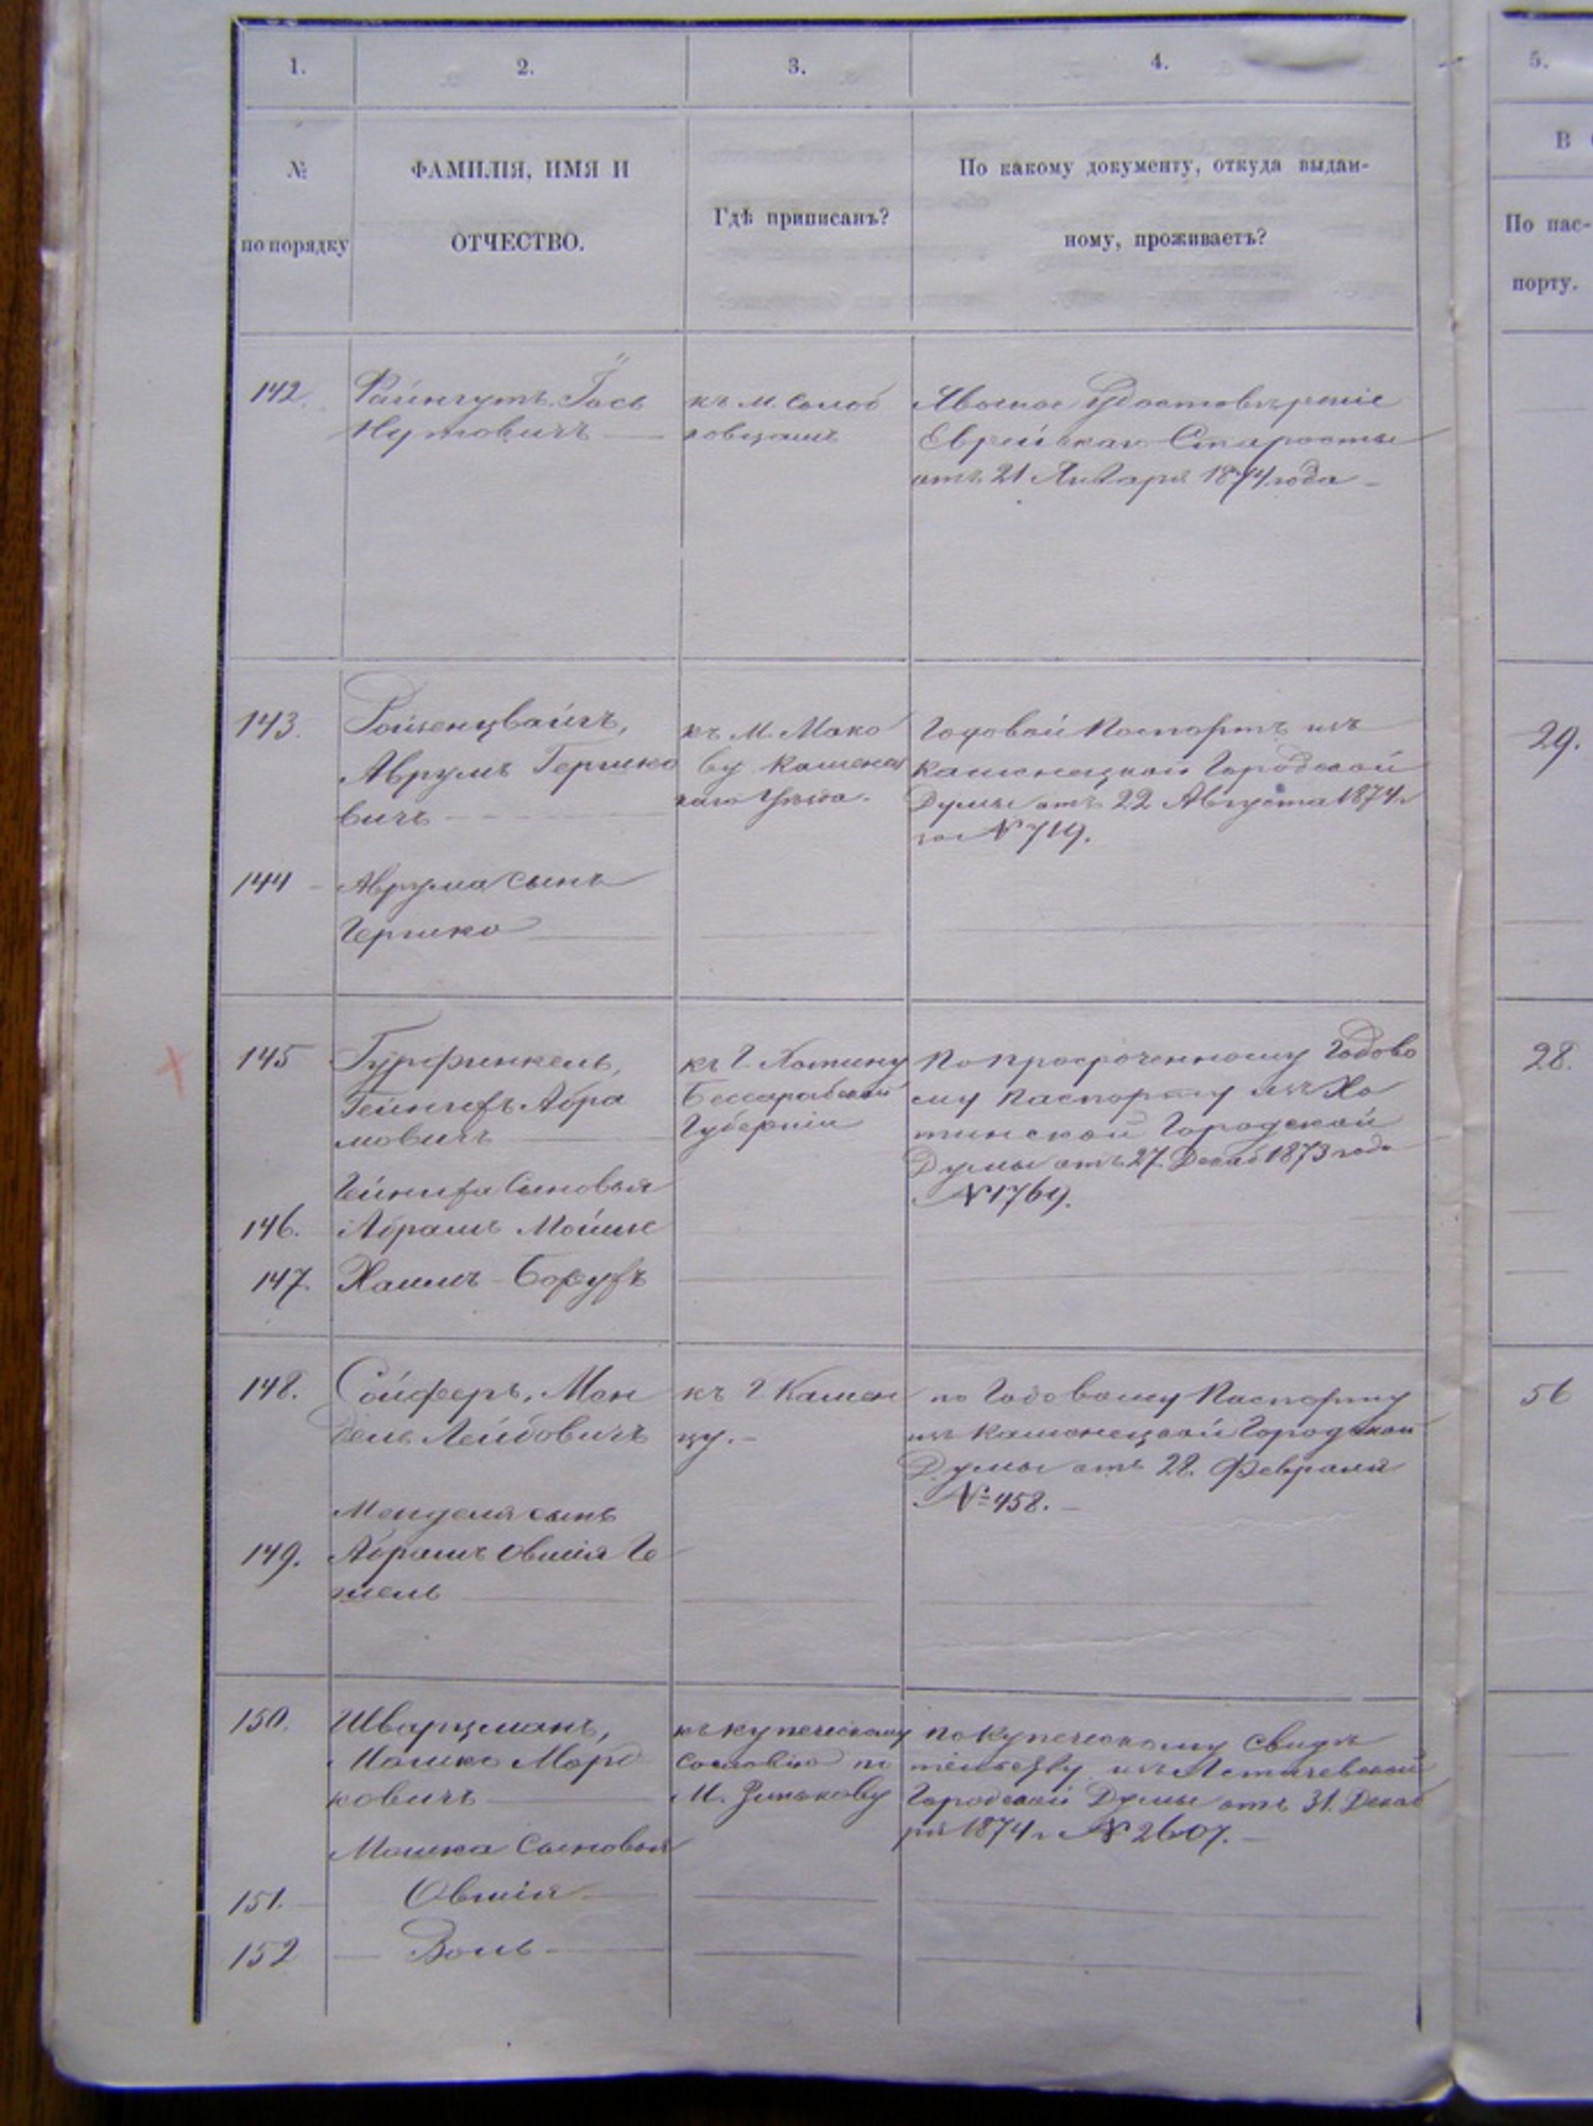 1. 2. 3. 4. 5.
№ по порядку
ФАМИЛІЯ, ИМЯ И
ОТЧЕСТВО.
Гдѣ приписанъ?
По какому документу, откуда выдан-
ному, проживаетъ?
В
По пас-
порту.
142.
Файнгутъ Іось
Нутовичъ
къ м. Солоб
ковцамъ
Удостовѣреніе
Еврейскаго Старосты
отъ 21 Января 1874 года
143.
Ройзенцвайгъ,
Аврумъ Гершко
вичъ
къ М. Мако
ву Каменец
каго Уѣзда.
Годовой Паспортъ изъ
Каменецкой Городской
Думы отъ 22 Августа 1874 г
за N 719.
29.
144
Аврума сынъ
Гершко
145
Гурфинкель,
Гейнихъ Абра
мовичъ
къ Г. Хотину
Бессарабской
Губерніи
По просроченному Годово
му Паспорту изъ Хо
тинской Городской
Думы отъ 27 Декаб 1873 года
N 1769.
28.
Гейниха Сыновья
146. Абрамъ Мойше
147. Хаимъ-Борухъ
148.
Сойферъ, Мен
дель Лейбовичъ
къ Г Камен
цу.
по Годовому Паспорту
изъ Каменецкой Городской
Думы отъ 28. Февраля
№ 458.
56
Менделя сынъ
149. Абрамъ Овшія Ге
шель
150.
Шварцманъ,
Мошко Морд
ковичъ
къ купеческому
сословію по
М. Зинькову
по Купеческому Свидѣ
тельству изъ Летичевской
Городской Думы отъ 31. Декаб
ря 1874 г N 2607.
Мошка Сыновья
151. Овшія
152 Волъ